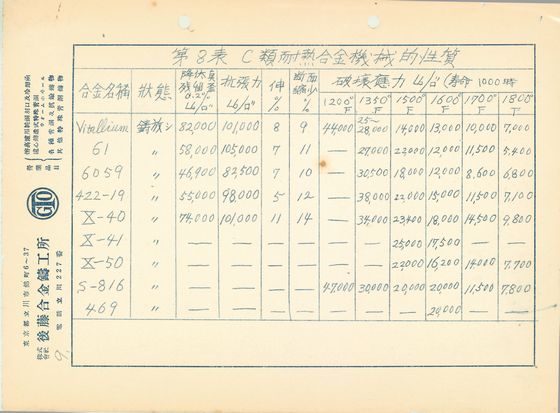 第8表 C類耐熱合金機械的性質
合金名稱 狀態 降伏負 残留歪 0.2% Lb/□″ 抗張力 Lb/□″ 伸 % 断面 縮少 % 破壞應力 Lb/□″ (壽命 1000時
1200°F 1350°F 1500°F 1600°F 1700°F 1800°F
Vitallium 鋳放シ 82,000 101,000 8 9 44000 25~28,000 14,000 13,000 10,000 7,000
61 〃 58,000 105,000 7 11 — 27,000 22,000 12,000 11,500 5,400
6059 〃 46,900 82,500 7 10 — 30,500 18,000 12,000 8,600 6,800
422-19 〃 55,000 98,000 5 12 — 38,000 22,000 15,000 11,500 7,100
X-40 〃 74,000 101,000 11 14 — 34,000 23,400 18,000 14,500 9,800
X-41 〃 — — — — — — 25,000 17,500 — —
X-50 〃 — — — — — — 22,000 16,200 14,000 7,700
S-816 〃 — — — — 47,000 30,000 20,000 20,000 11,500 7,800
469 〃 — — — — — — — 20,000
營業品目
各種管詞及抗給鑄物
其他特殊管鑄物
GTO
東京都立川市錦町6~37
株式會社 後藤合金鑄工所
電話立川227番
9.